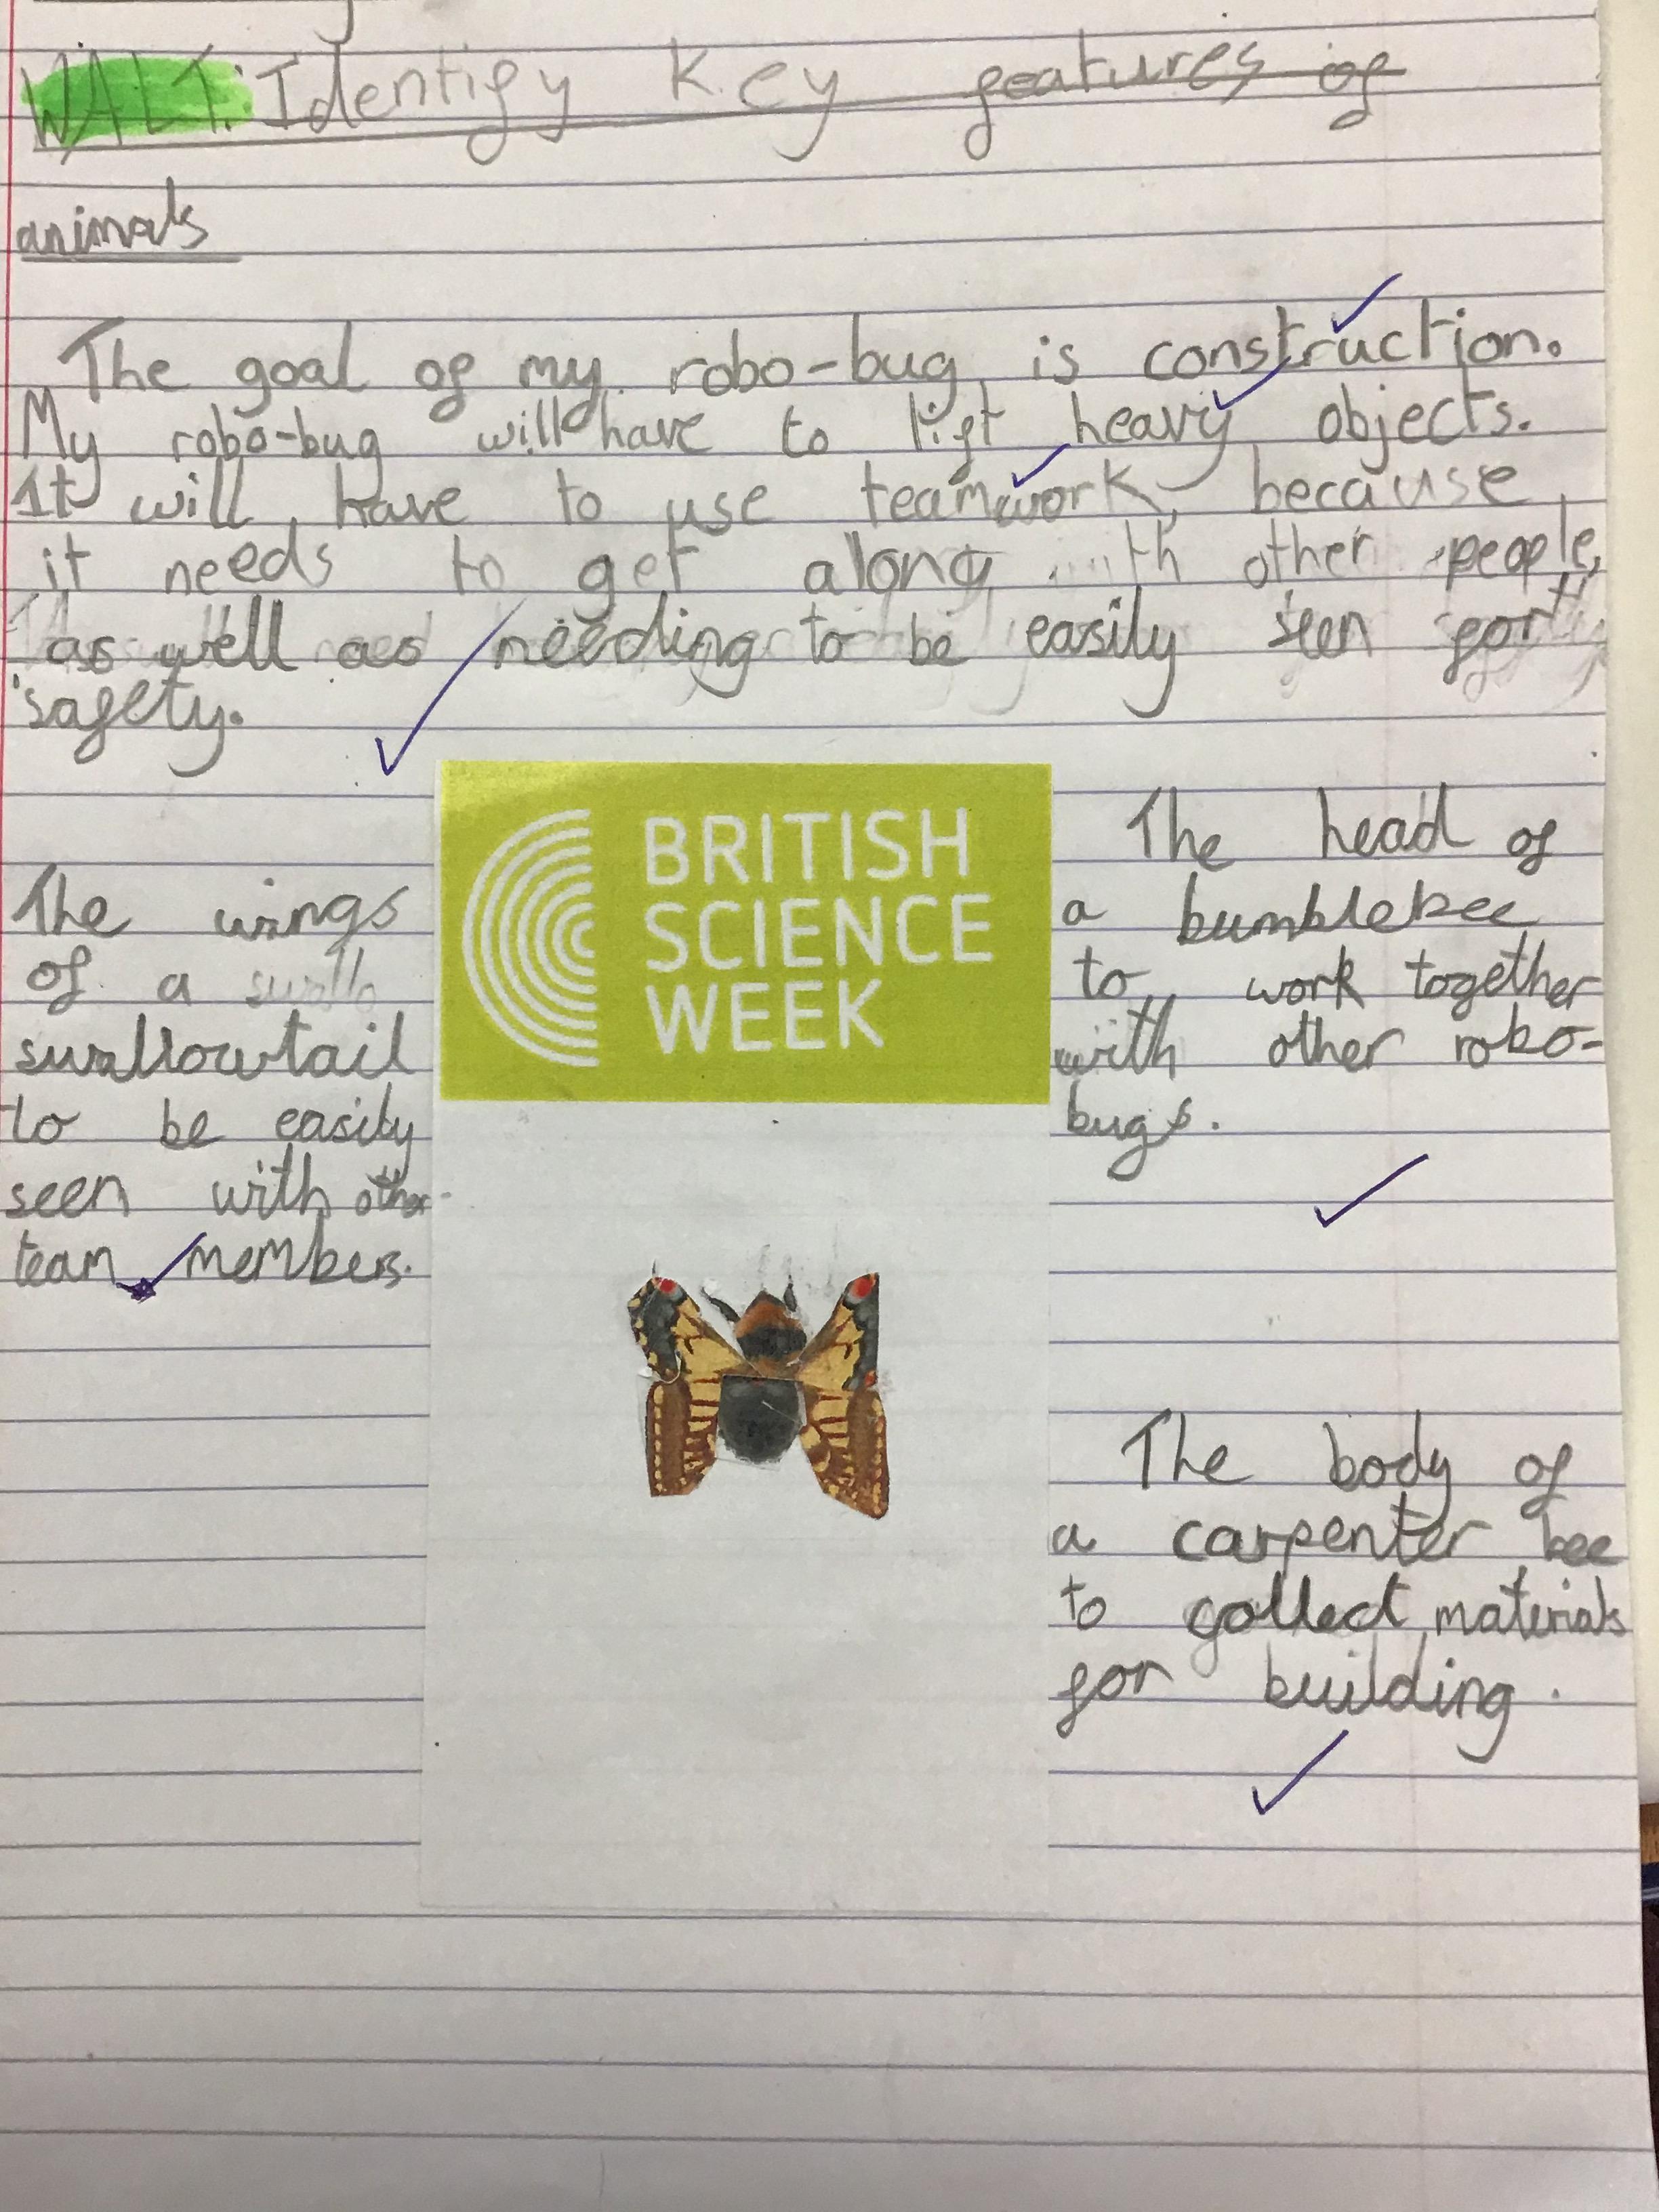 WALT: Identify Key features of
animals
The goal of my robo-bug is construction.
My robo-bug will have to lift heavy objects.
It will have to use teamwork, because
it needs to get along with other people,
as well as needing to be easily seen for
safety.
The wings
of a swallo
swallowtail
to be easily
seen with other
team members.
BRITISH
SCIENCE
WEEK
The head of
a bumblebee
to work together
with other robo-
bugs.
The body of
a carpenter bee
to collect materials
for building.